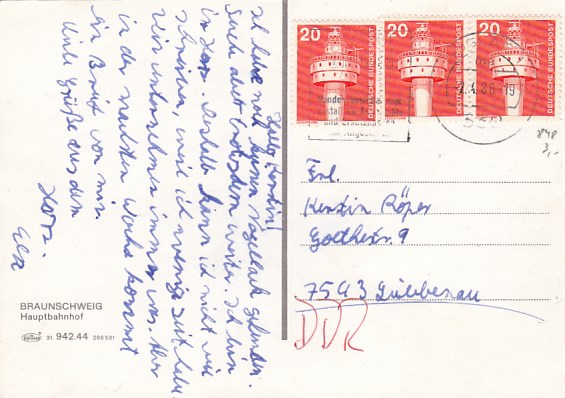 Liebe Kerstin!
Ich habe noch keinen Nagellack gefunden.
Suche aber trotzdem weiter. Ich bin
im Harz. Deshalb kann ich nicht viel
schreiben, weil ich wenig Zeit habe.
Wir unternehmen immer was. Aber
in der nächsten Woche kommt
ein Brief von mir.
Viele Grüße aus dem
Harz.
BRAUNSCHWEIG
Hauptbahnhof
31. 942.44 286591
20 20 20
DEUTSCHE BUNDESPOST
DEUTSCHE BUNDESPOST
DEUTSCHE BUNDESPOST
848
3,-
Frl.
Kerstin Röper
Goethestr. 9
7543 Lübbenau
DDR